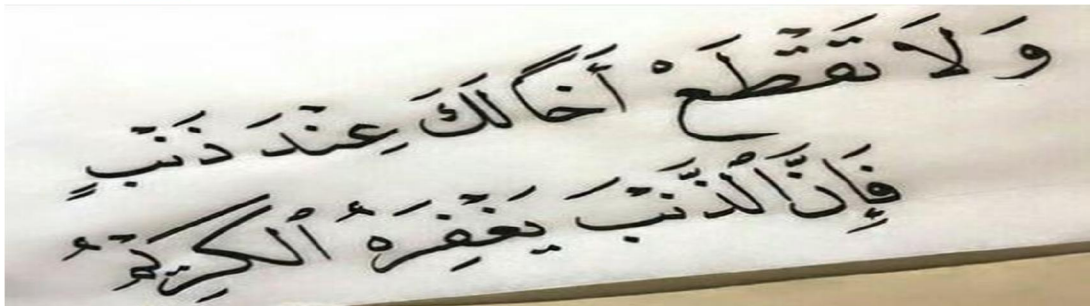 وَلَا تَقْطَعْ أَخًا لَكَ عِنْدَ ذَنْبٍ
فَإِنَّ ٱلذَّنْبَ يَغْفِرُهُ ٱلْكَرِيمُ